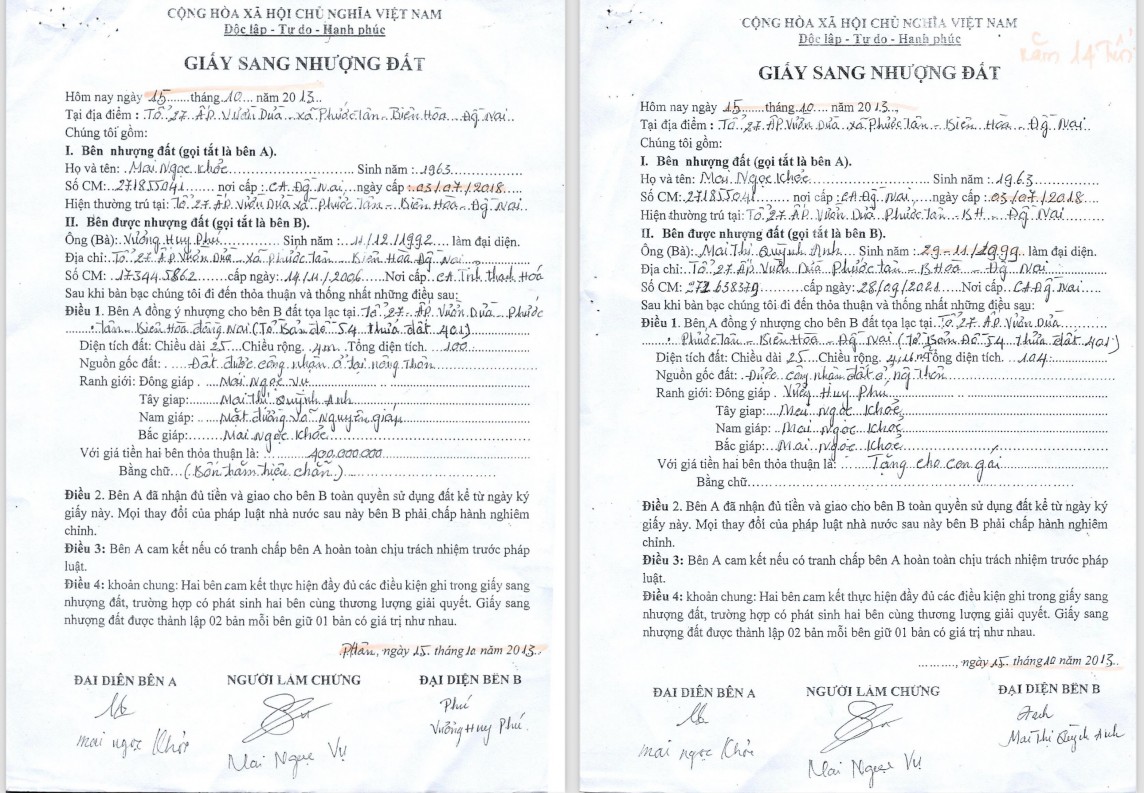 CỘNG HÒA XÃ HỘI CHỦ NGHĨA VIỆT NAM
Độc lập - Tự do - Hạnh phúc
GIẤY SANG NHƯỢNG ĐẤT
Hôm nay ngày 15.......tháng.10... năm 2013..
Tại địa điểm : Tổ 27 ÂP. Vườn Dừa xã Phước Tân - Biên Hòa - Đg Nai
Chúng tôi gồm:
I. Bên nhượng đất (gọi tắt là bên A).
Họ và tên: Mai Ngọc Khỏe Sinh năm : 1963
Số CM: 271855041 nơi cấp : CA. Đg Nai ngày cấp : 03/07/2018
Hiện thường trú tại: Tổ 27 ÂP. Vườn Dừa xã Phước Tân - Biên Hòa - Đg Nai
II. Bên được nhượng đất (gọi tắt là bên B).
Ông (Bà): Vương Huy Phú Sinh năm : 11/12/1992 làm đại diện.
Địa chỉ: Tổ 27 ÂP. Vườn Dừa xã Phước Tân Biên Hòa Đg Nai
Số CM: 173445862 cấp ngày: 14/11/2006 Nơi cấp CA Tỉnh Thanh Hoá
Sau khi bàn bạc chúng tôi đi đến thỏa thuận và thống nhất những điều sau:
Điều 1. Bên A đồng ý nhượng cho bên B đất tọa lạc tại. Tổ 27 ÂP. Vườn Dừa Phước
Tân Biên Hòa đồng Nai (Tờ Bản đồ 54 thửa đất 401)
Diện tích đất: Chiều dài 25 Chiều rộng. 4m Tổng diện tích. 100
Nguồn gốc đất: Đất được công nhận ở tại nông thôn
Ranh giới: Đông giáp . Mai Ngọc Vụ
Tây giap: Mai Thị Quỳnh Anh
Nam giáp: Mặt đường Võ Nguyên giáp
Bắc giáp: Mai Ngọc Khỏe
Với giá tiền hai bên thỏa thuận là: 400.000.000
Bằng chữ (Bốn trăm triệu chẵn)
Điều 2. Bên A đã nhận đủ tiền và giao cho bên B toàn quyền sử dụng đất kể từ ngày ký
giấy này. Mọi thay đổi của pháp luật nhà nước sau này bên B phải chấp hành nghiêm
chỉnh.
Điều 3: Bên A cam kết nếu có tranh chấp bên A hoàn toàn chịu trách nhiệm trước pháp
luật.
Điều 4: khoản chung: Hai bên cam kết thực hiện đầy đủ các điều kiện ghi trong giấy sang
nhượng đất, trường hợp có phát sinh hai bên cùng thương lượng giải quyết. Giấy sang
nhượng đất được thành lập 02 bản mỗi bên giữ 01 bản có giá trị như nhau.
PTân, ngày 15. tháng 10 năm 2013..
ĐẠI DIỆN BÊN A NGƯỜI LÀM CHỨNG ĐẠI DIỆN BÊN B
Phú
mai ngọc Khỏe Mai Ngọc Vụ Vương Huy Phú
CỘNG HÒA XÃ HỘI CHỦ NGHĨA VIỆT NAM
Độc lập - Tự do - Hạnh phúc
14
GIẤY SANG NHƯỢNG ĐẤT
Hôm nay ngày 15......tháng.10... năm 2013..
Tại địa điểm : Tổ 27 ÂP Vườn Dừa xã Phước Tân - Biên Hòa - Đg Nai
Chúng tôi gồm:
I. Bên nhượng đất (gọi tắt là bên A).
Họ và tên: Mai Ngọc Khỏe Sinh năm : 1963
Số CM: 271855041 nơi cấp : CA Đg Nai ngày cấp : 03/07/2018
Hiện thường trú tại: Tổ 27 ÂP. Vườn Dừa Phước Tân - BH - Đg Nai
II. Bên được nhượng đất (gọi tắt là bên B).
Ông (Bà): Mai Thị Quỳnh Anh Sinh năm : 29-11/1999 làm đại diện.
Địa chỉ: Tổ 27 ÂP. Vườn Dừa Phước Tân - BHoà - Đg Nai
Số CM: 272658379 cấp ngày: 28/09/2021 Nơi cấp CA Đg Nai
Sau khi bàn bạc chúng tôi đi đến thỏa thuận và thống nhất những điều sau:
Điều 1. Bên A đồng ý nhượng cho bên B đất tọa lạc tại. Tổ 27 ÂP. Vườn Dừa
Phước Tân - Biên Hòa - Đg Nai (Tờ Bản Đồ 54 Thửa đất 401)
Diện tích đất: Chiều dài 25 Chiều rộng. 4,16m Tổng diện tích. 104
Nguồn gốc đất: Được công nhận đất ở nông thôn
Ranh giới: Đông giáp . Vương Huy Phú
Tây giap: Mai ngọc Khỏe
Nam giáp: Mai ngọc Khỏe
Bắc giáp: Mai ngọc Khỏe
Với giá tiền hai bên thỏa thuận là: Tặng cho con gái
Bằng chữ
Điều 2. Bên A đã nhận đủ tiền và giao cho bên B toàn quyền sử dụng đất kể từ ngày ký
giấy này. Mọi thay đổi của pháp luật nhà nước sau này bên B phải chấp hành nghiêm
chỉnh.
Điều 3: Bên A cam kết nếu có tranh chấp bên A hoàn toàn chịu trách nhiệm trước pháp
luật.
Điều 4: khoản chung: Hai bên cam kết thực hiện đầy đủ các điều kiện ghi trong giấy sang
nhượng đất, trường hợp có phát sinh hai bên cùng thương lượng giải quyết. Giấy sang
nhượng đất được thành lập 02 bản mỗi bên giữ 01 bản có giá trị như nhau.
.........., ngày 15. tháng 10 năm 2013..
ĐẠI DIỆN BÊN A NGƯỜI LÀM CHỨNG ĐẠI DIỆN BÊN B
Anh
mai ngọc Khỏe Mai Ngọc Vụ Mai Thị Quỳnh Anh